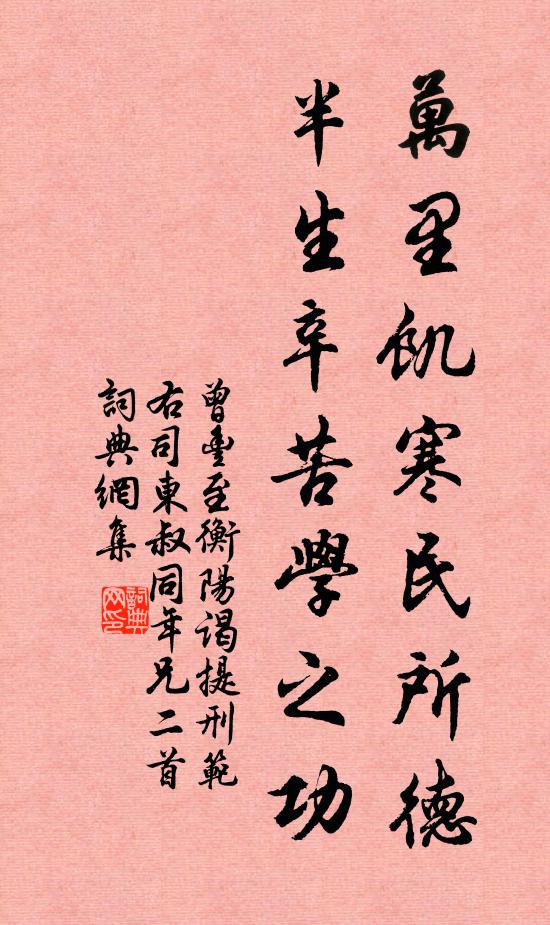 萬里飢寒民所德
半生辛苦學之功
曾豊至衡陽謁提刑範
右司東叔同年兄二首
詞典網集
詞典网印